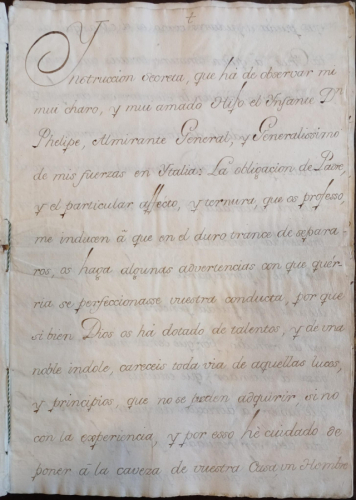 Ynstruccion secreta, que há de observar mi
mui charo, y mui amado Hijo el Ynfante Dn
Phelipe, Almirante General, y Generalissimo
de mis fuerzas en Ytalia: La obligacion de Padre,
y el particular affecto, y ternura, que os professo,
me inducen â que en el duro trance de separa-
ros, os haga algunas advertencias con que quer-
ria se perfeccionasse vuestra conducta, por que
si bien Dios os há dotado de talentos, y de una
noble indole, careceis toda via de aquellas luces,
y principios, que no se pueden adquirir si no
con la experiencia, y por esso hè cuidado de
poner â la caveza de vuestra Casa un Hombre